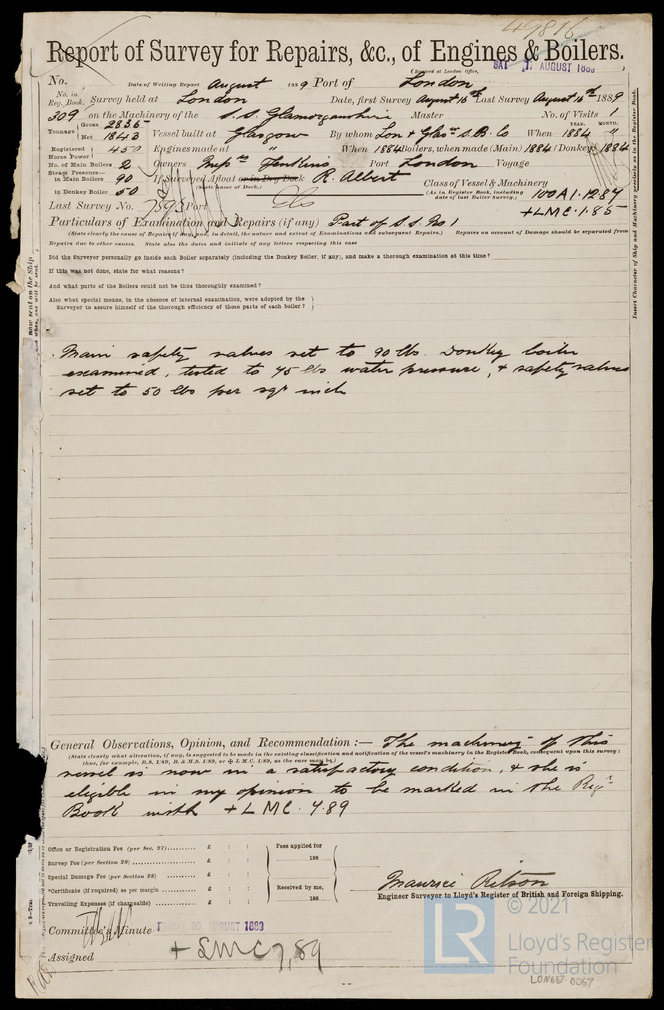 49816
Report of Survey for Repairs, &c., of Engines & Boilers.
(Received at London Office, SAT 17 AUGUST 1889
No. Date of Writing Report August 1889 Port of London
No. in Reg. Book. Survey held at London Date, first Survey August 16th Last Survey August 16th 1889
309 on the Machinery of the S.S. Glamorganshire Master No. of Visits 1
Tonnage Gross 2836 Net 1843 Vessel built at Glasgow By whom Lon & Glasw S.B. Co When 1884 YEAR. MONTH.
Registered Horse Power 450 Engines made at " When 1884 Boilers, when made (Main) 1884 (Donkey) 1884
No. of Main Boilers 2 Owners Messrs Jenkins Port London Voyage
Steam Pressure— in Main Boilers 90 If Surveyed Afloat or in Dry Dock R. Albert
(State name of Dock.)
in Donkey Boiler 50 Class of Vessel & Machinery
(As in Register Book, including date of last Boiler Survey.) 100A1.12.87
+LMC.1.85
Last Survey No. 7393 Port
Particulars of Examination and Repairs (if any) Part of S.S. No 1
(State clearly the cause of Repairs if any, and, in detail, the nature and extent of Examinations and subsequent Repairs.) Repairs on account of Damage should be separated from
Repairs due to other causes. State also the dates and initials of any letters respecting this case
Did the Surveyor personally go inside each Boiler separately (including the Donkey Boiler, if any), and make a thorough examination at this time?
If this was not done, state for what reasons?
And what parts of the Boilers could not be thus thoroughly examined?
Also what special means, in the absence of internal examination, were adopted by the
Surveyor to assure himself of the thorough efficiency of those parts of each boiler?
Main safety valves set to 90 lbs. Donkey boiler
examined, tested to 75 lbs water pressure, & safety valves
set to 50 lbs per sqr inch
Insert Character of Ship and Machinery precisely as in the Register Book.
General Observations, Opinion, and Recommendation :— The machinery of this
(State clearly what alteration, if any, is suggested to be made in the existing classification and notification of the vessel's machinery in the Register Book, consequent upon this survey;
thus, for example, B.S. 1/89, B. & M.S. 1/89, or ✠ L.M.C. 1/89, as the case may be.)
vessel is now in a satisfactory condition, & she is
eligible in my opinion to be marked in the Regr
Book with +LMC.7.89
Office or Registration Fee (per Sec. 27) £ : : Fees applied for
188
Survey Fee (per Section 28) £ : :
Special Damage Fee (per Section 28) £ : :
*Certificate (if required) as per margin £ : : Received by me,
Travelling Expenses (if chargeable) £ : : 188
Maurice Ritson
Engineer Surveyor to Lloyd's Register of British and Foreign Shipping.
Committee's Minute AUGUST 1889
Assigned +LMC 7,89
LR
© 2021
Lloyd's Register
Foundation
LON687-0067